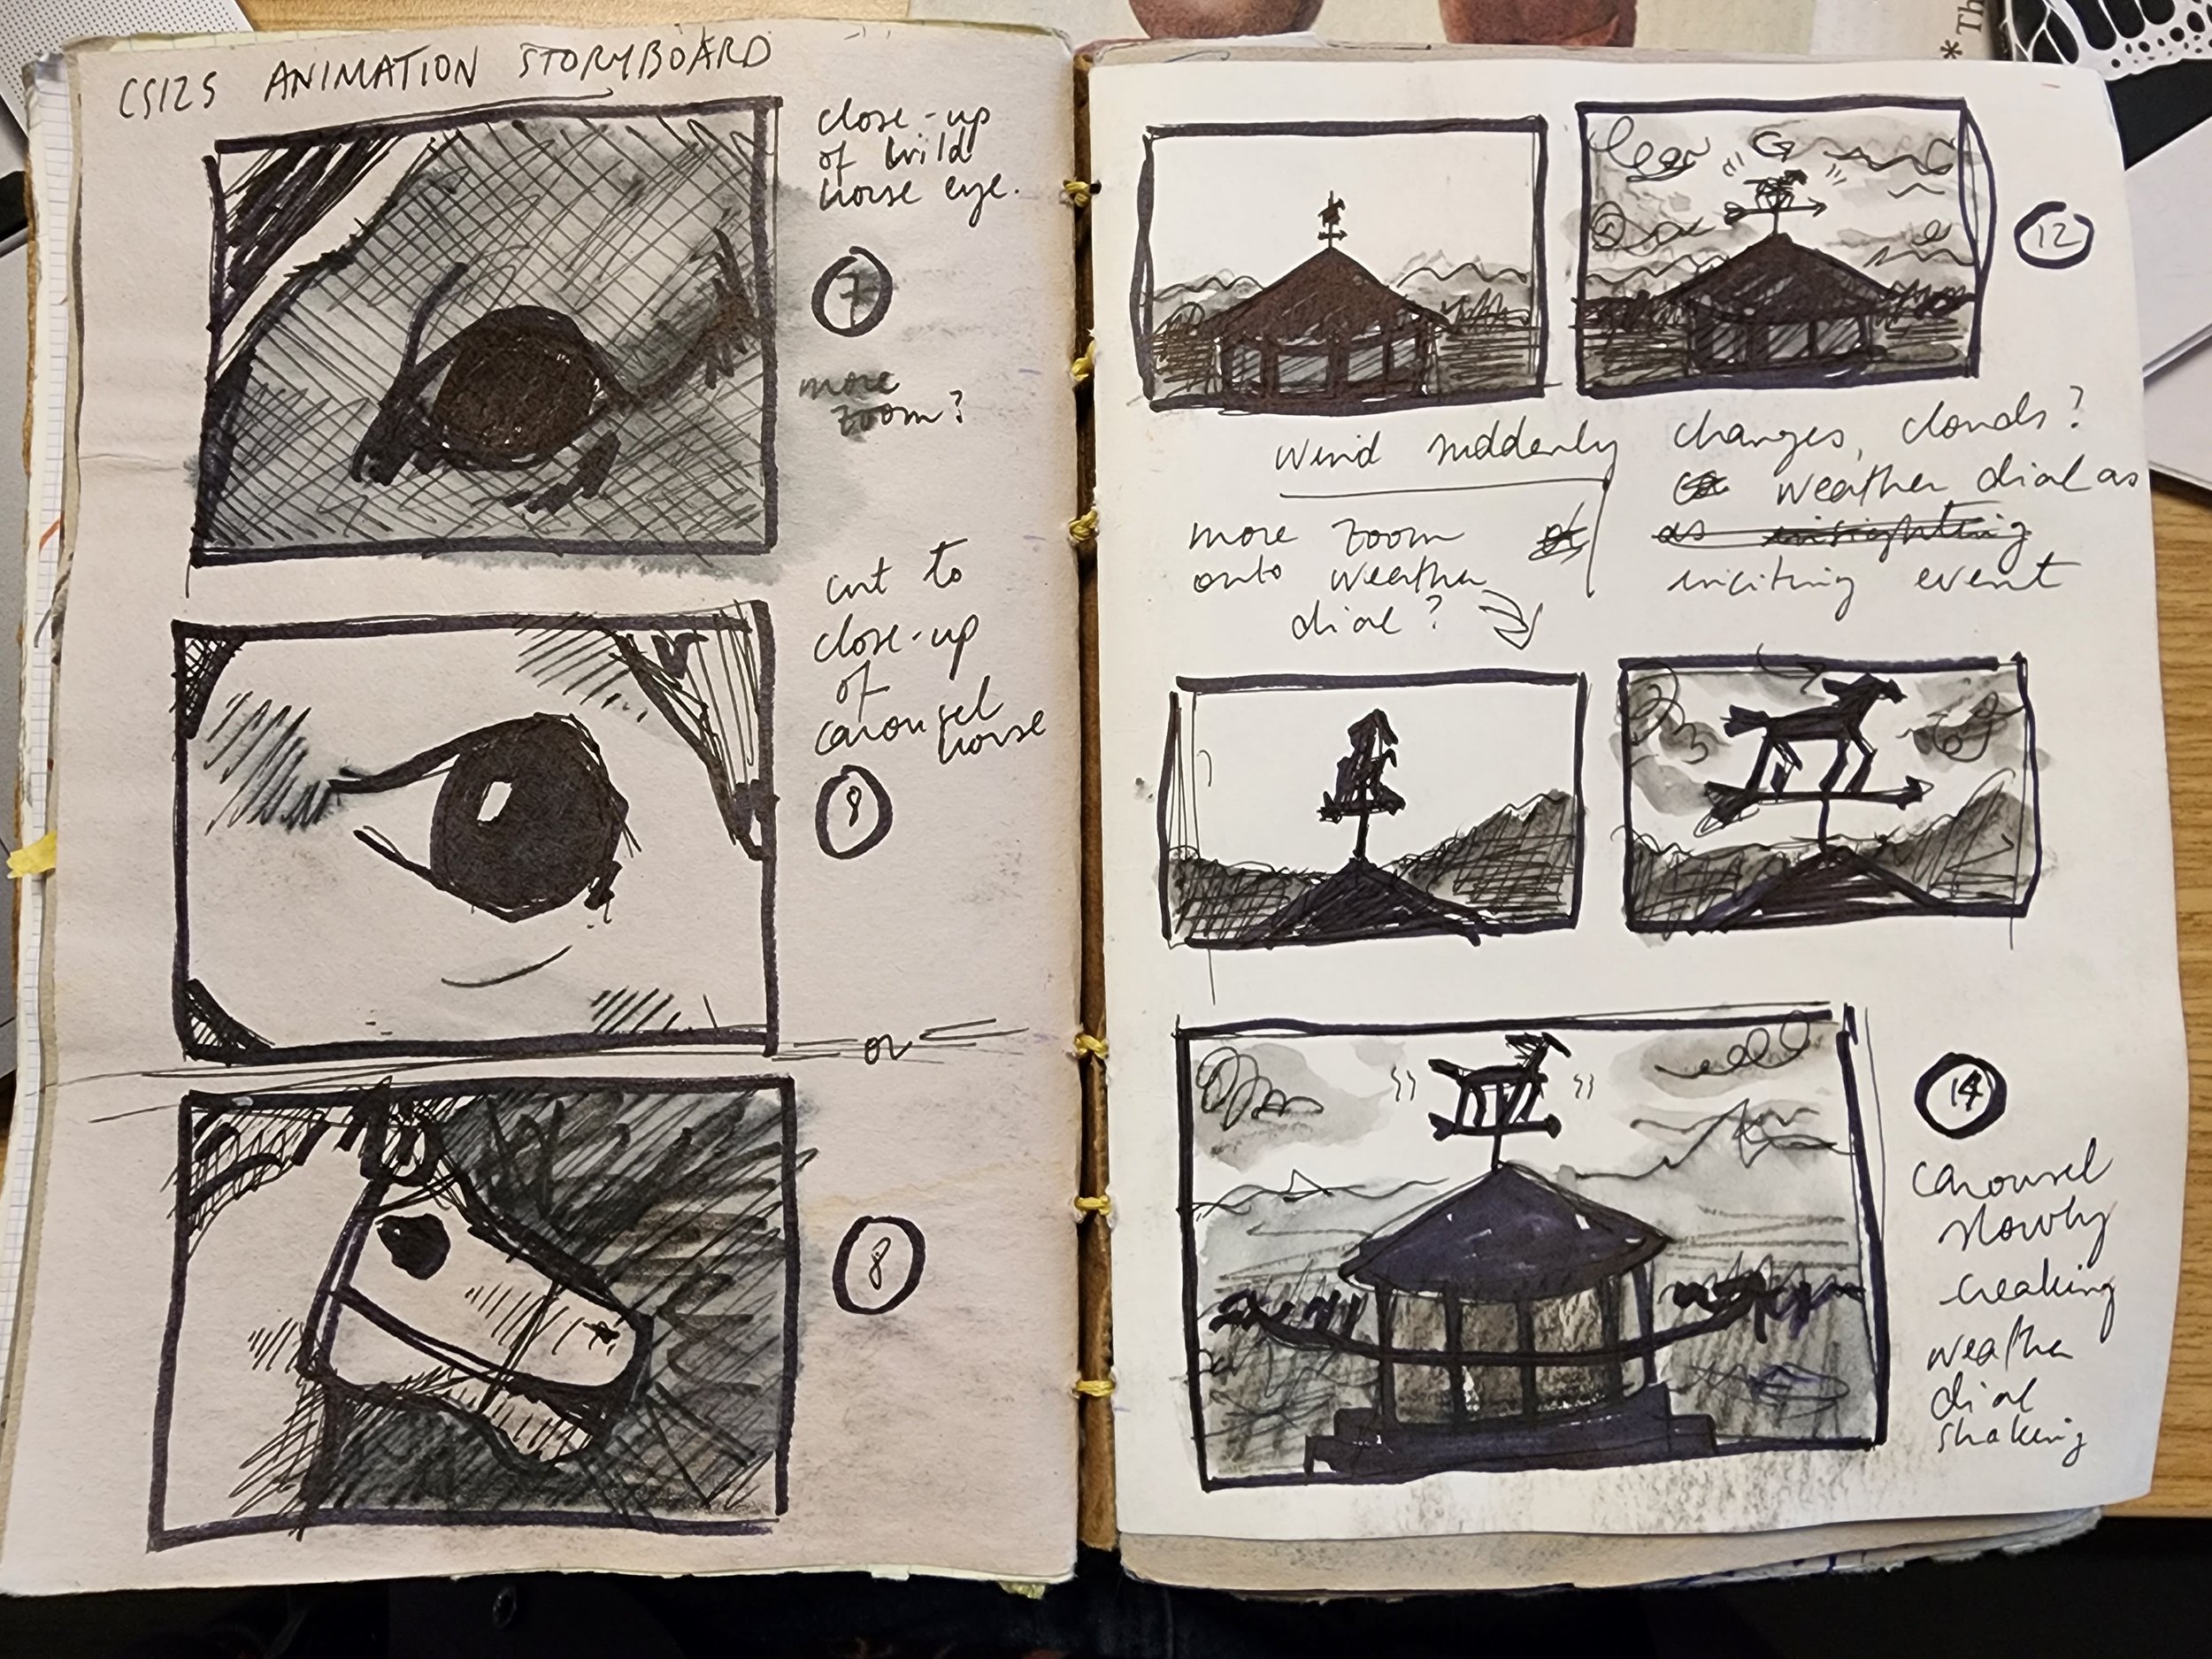 CS125 ANIMATION STORYBOARD
close-up
of wild
horse eye.
7
more
zoom?
cut to
close-up
of
carousel
horse
8
or
8
12
wind suddenly changes, clouds?
weather dial as
inciting event
more zoom
onto weather
dial?
14
carousel
slowly
creaking
weather
dial
shaking
* Th